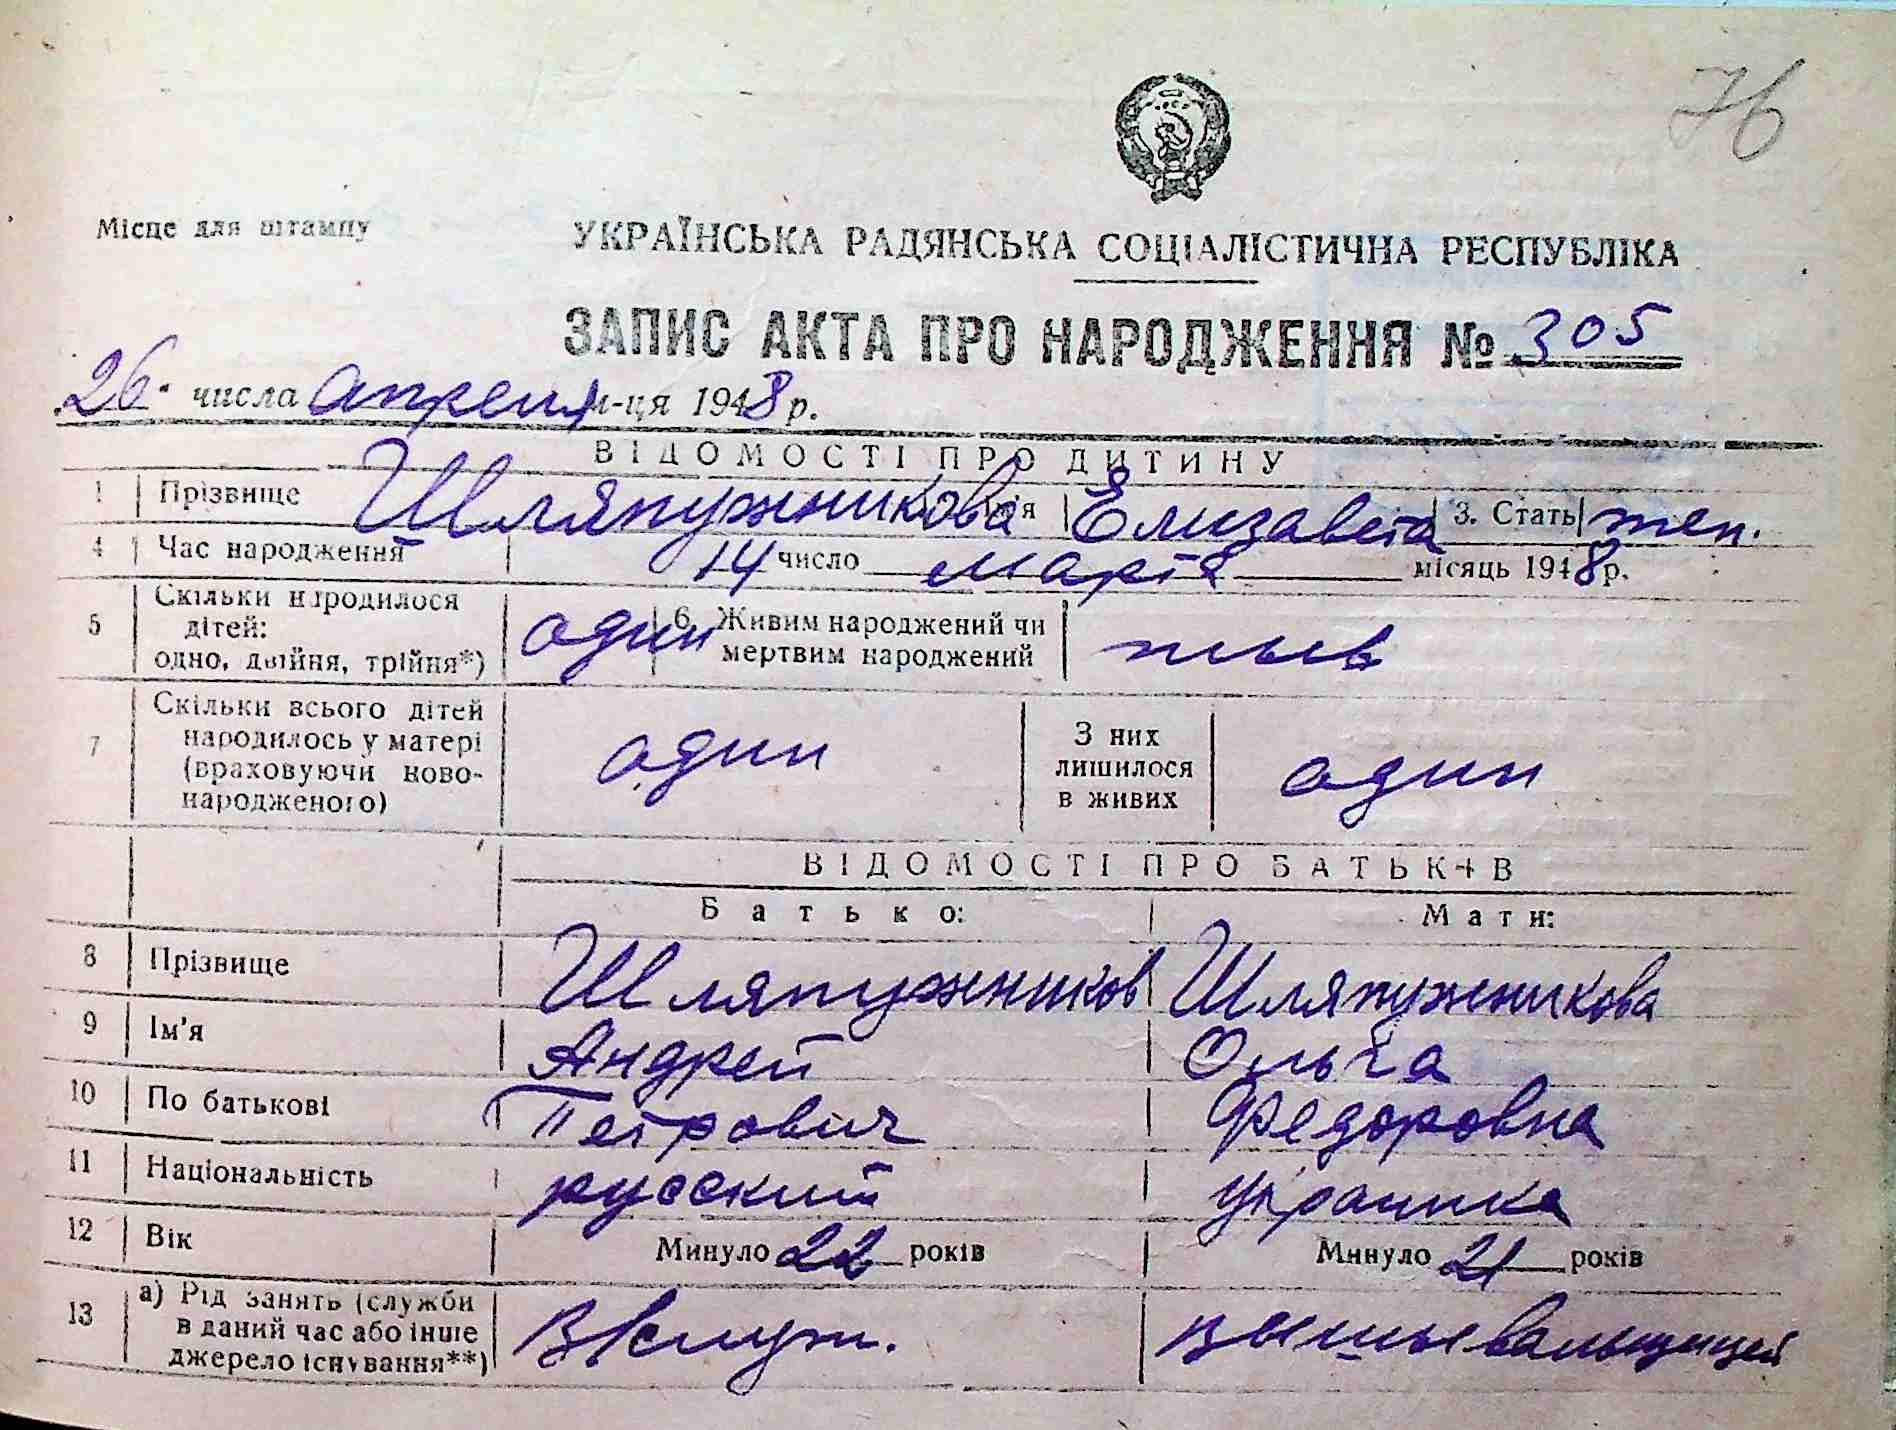 76
Місце для штампу
УКРАЇНСЬКА РАДЯНСЬКА СОЦІАЛІСТИЧНА РЕСПУБЛІКА
ЗАПИС АКТА ПРО НАРОДЖЕННЯ № 305
26 числа апреля м-ця 1948 р.
ВІДОМОСТІ ПРО ДИТИНУ
1 Прізвище Шляпужникова ія Елизавета 3. Стать жен.
4 Час народження 14 число марта місяць 1948 р.
5 Скільки народилося дітей: одно, двійня, трійня*) один 6. Живим народжений чи мертвим народжений жив
7 Скільки всього дітей народилось у матері (враховуючи ново-народженого) один З них лишилося в живих один
ВІДОМОСТІ ПРО БАТЬКІВ
Батько: Мати:
8 Прізвище Шляпужников Шляпужникова
9 Ім'я Андрей Ольга
10 По батькові Петрович Федоровна
11 Національність русский украинка
12 Вік Минуло 22 років Минуло 21 років
13 а) Рід занять (служби в даний час або інше джерело існування**) в/служ. вышивальщицей